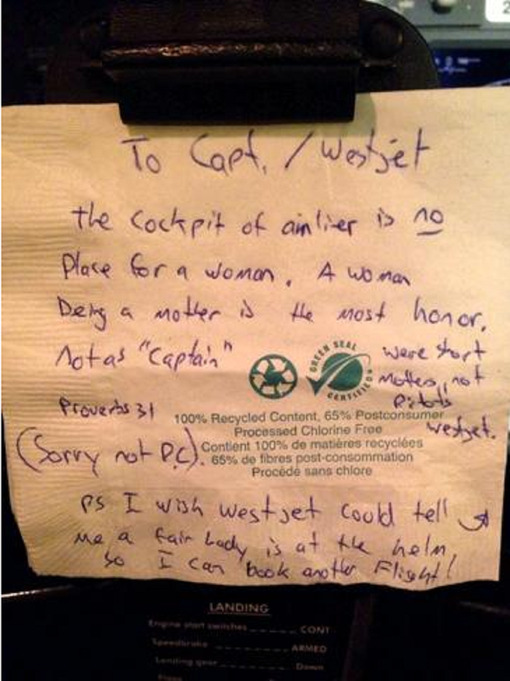 To Capt. / Westjet
the cockpit of airlier is no
Place for a woman. A woman
being a mother is the most honor.
Not as "Captain"
GREEN SEAL
CERTIFIED
were short
Mothers, not
Pilots
westjet.
Proverbs 31
100% Recycled Content, 65% Postconsumer
Processed Chlorine Free
(Sorry not P.C).
Contient 100% de matières recyclées
65% de fibres post-consommation
Procédé sans chlore
PS I wish westjet could tell
me a fair lady is at the helm
so I can book another Flight!
LANDING
Engine start switches CONT
Speedbrake ARMED
Landing gear Down
2